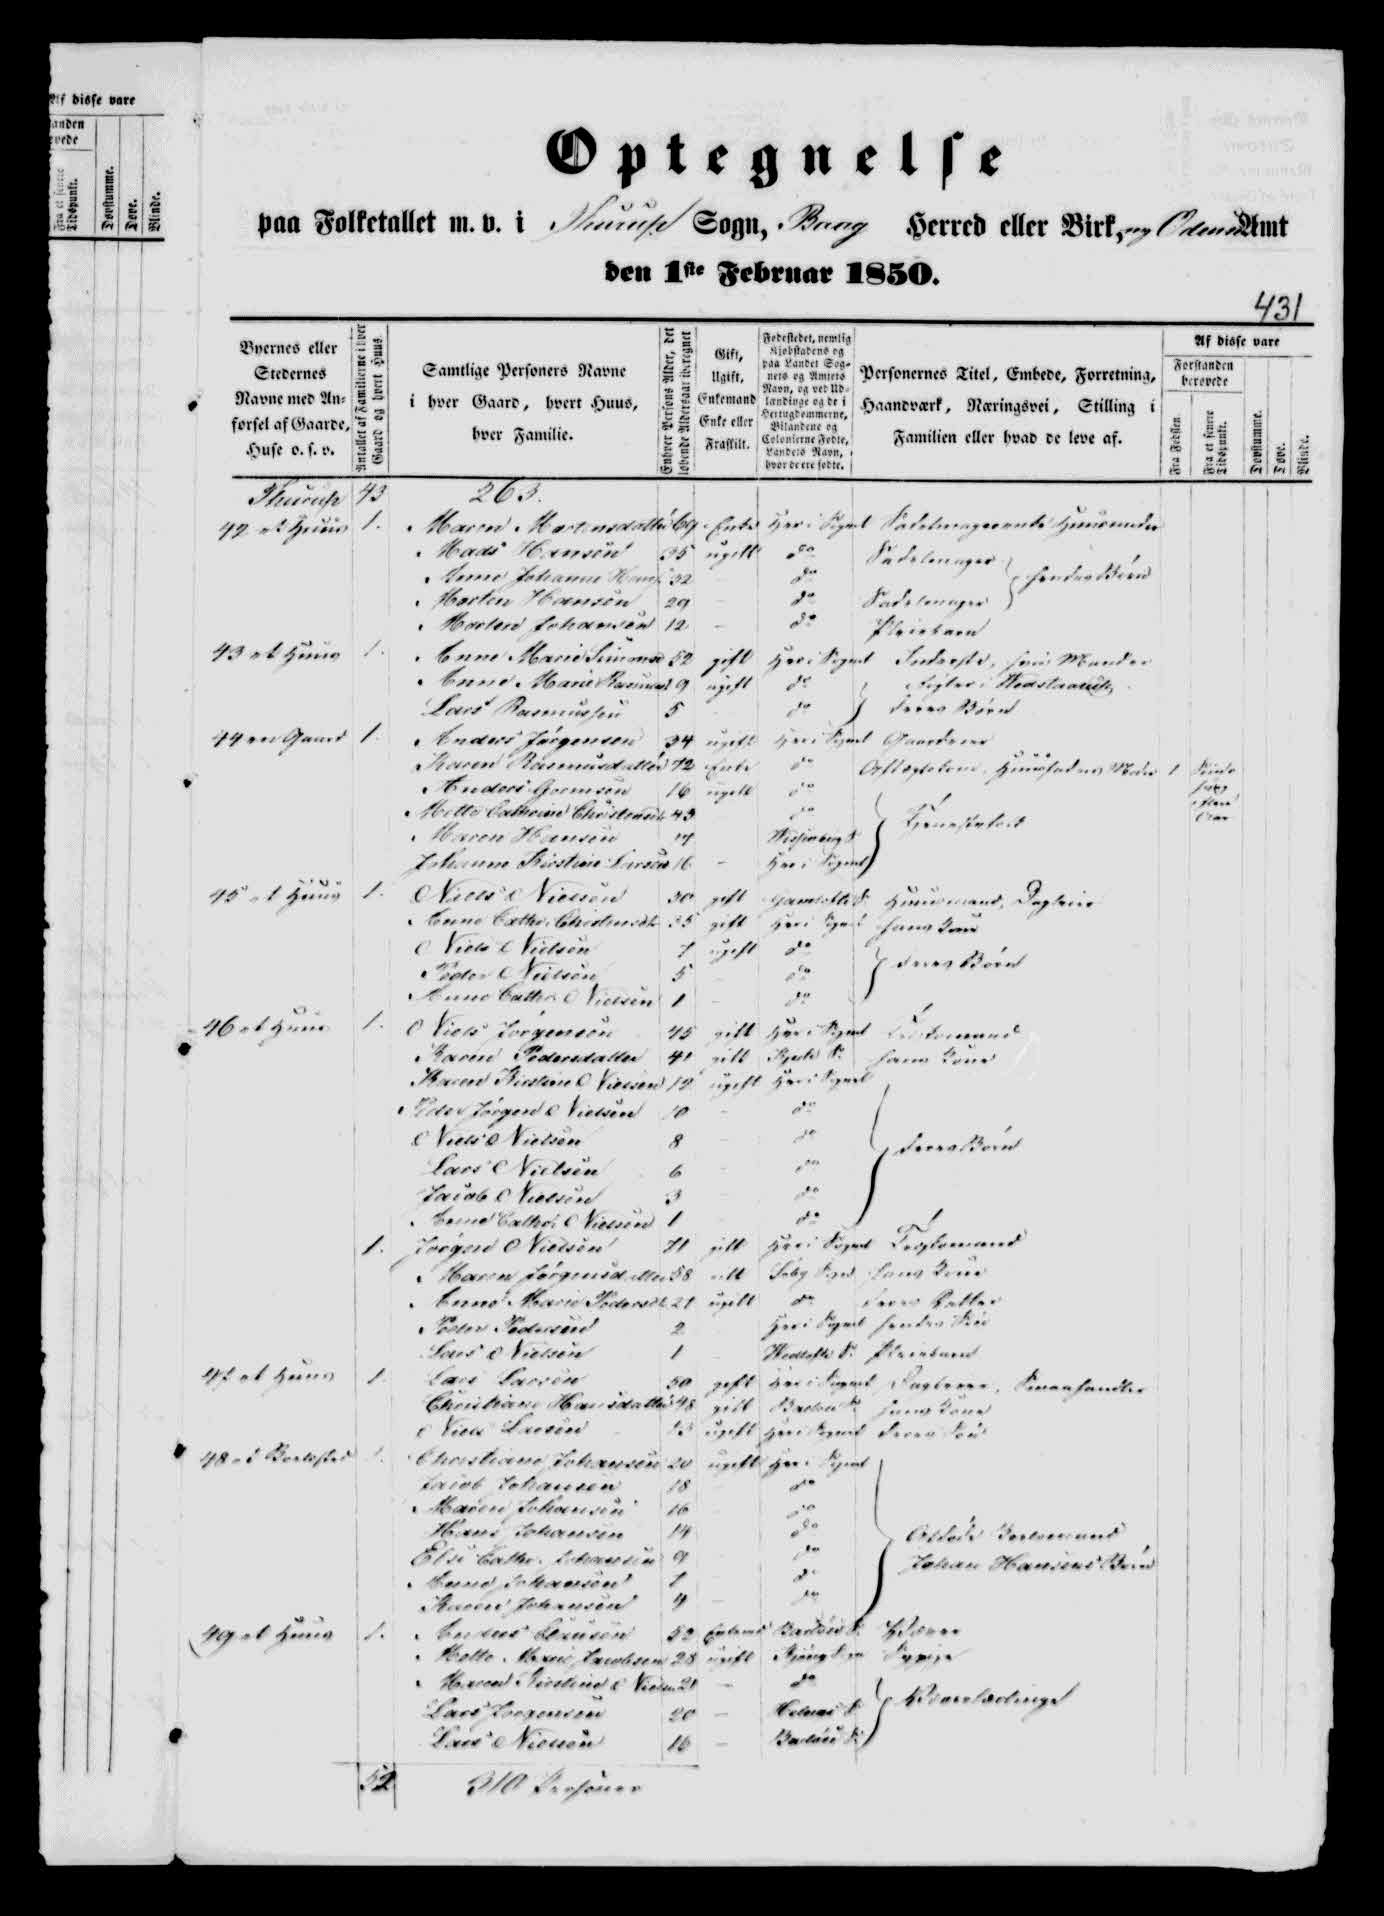 Af disse vare
anden
vede
Fra et senere Tidspunkt.
Døvstumme.
Døve.
Blinde.
Optegnelse
paa Folketallet m. v. i Thurup Sogn, Baag Herred eller Birk, og Odense Amt
den 1ste Februar 1850.
431
Byernes eller Stedernes Navne med Anførsel af Gaarde, Huse o. s. v.
Antallet af Familierne i hver Gaard og hvert Huus.
Samtlige Personers Navne i hver Gaard, hvert Huus, hver Familie.
Enhver Persons Alder, det løbende Aldersaar iberegnet
Gift, Ugift, Enkemand Enke eller Fraskilt.
Fødestedet, nemlig Kjøbstadens og paa Landet Sognets og Amtets Navn, og ved Udlændinge og de i Hertugdømmerne, Bilandene og Colonierne Fødte, Landets Navn, hvor de ere fødte.
Personernes Titel, Embede, Forretning, Haandværk, Næringsvei, Stilling i Familien eller hvad de leve af.
Af disse vare
Forstanden berøvede
Fra Fødslen.
Fra et senere Tidspunkt.
Døvstumme.
Døve.
Blinde.
Thurup 43 263.
42 et Huus 1. Maren Mortensdatter 69 Enke Her i Sognet Sadelmagerenke Huusmoder
Mads Hansen 35 ugift do Sadelmager
Anne Johanne Hans 32 - do } hendes Børn
Morten Hansen 29 - do Sadelmager
Morten Johansen 12 - do Pleiebarn
43 et Huus 1. Anne Marie Simons 52 gift Her i Sognet Inderste, hvis Mand er
Anne Marie Rasmusd 9 ugift do
Lars Rasmussen 5 do } deres Børn
44 en Gaard 1. Anders Jørgensen 34 ugift Her i Sognet Gaardeier
Karen Rasmusdatter 72 Enke do Aftægtskone, Huusfaders Moder 1
Anders 16 ugift do
Mette Cathrine Christensd 43 do } Tjenestefolk
Maren Hansen
Johanne Kirstine Larsen 16 - Her i Sognet
45 et Huus 1. Niels Nielsen 30 gift Gamtofte S. Huusmand, Dagleier
Anne Cathr. Christensd. 35 gift Her i Sognet hans Kone
Niels Nielsen 7 ugift do
Peder Nielsen 5 do } deres Børn
Anne Cathr. Nielsen 1 - do
46 et Huus 1. Niels Jørgensen 45 gift Her i Sognet
Karen Pedersdatter 41 gift hans Kone
Karen Kirstine Nielsen 12 ugift Her i Sognet
Peder Jørgen Nielsen 10 - do
Niels Nielsen 8 do } deres Børn
Lars Nielsen 6 do
Jacob Nielsen 3 do
Anne Cathr. Nielsen 1 do
1. Jørgen Nielsen 71 gift Her i Sognet
Maren Jørgensdatter 58 gift hans Kone
Anne Marie Pedersd. 21 ugift do deres Datter
Peder Pedersen 2 Her i Sognet hendes Søn
Lars Nielsen 1 Pleiebarn
47 et Huus 1. Lars Larsen 50 gift Her i Sognet Dagleier, Smaahandler
Christiane Hansdatter 48 gift Baaløse S. hans Kone
Niels Larsen ugift Her i Sognet deres Søn
48 et Boelssted 1. Christiane Johansen 20 ugift Her i Sognet
Jacob Johansen 18 do
Maren Johansen 16 do
Hans Johansen 14 do } Afdøde Boelsmand
Else Cathr. Johansen 9 do Johan Hansens Børn
Anne Johansen 7 do
Karen Johansen 4 - do
49 et Huus 1. Anders Clausen 52 Enkemd Baaløse S. Væver
Mette Marie Jacobsen 28 ugift Sypige
Maren Kirstine Nielsen 21 - do
Lars Jørgensen 20 - Helnæs S. } Væverlærlinge
Lars Nielsen 16 - Baaløse S.
52 310 Personer